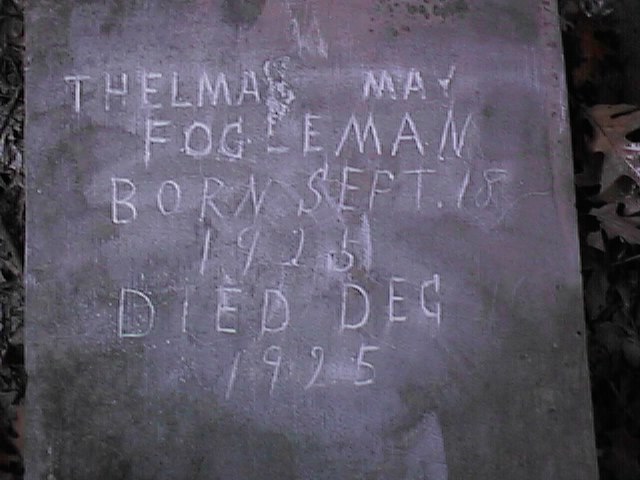 THELMA MAY
FOGLEMAN
BORN SEPT. 18
1925
DIED DEC
1925